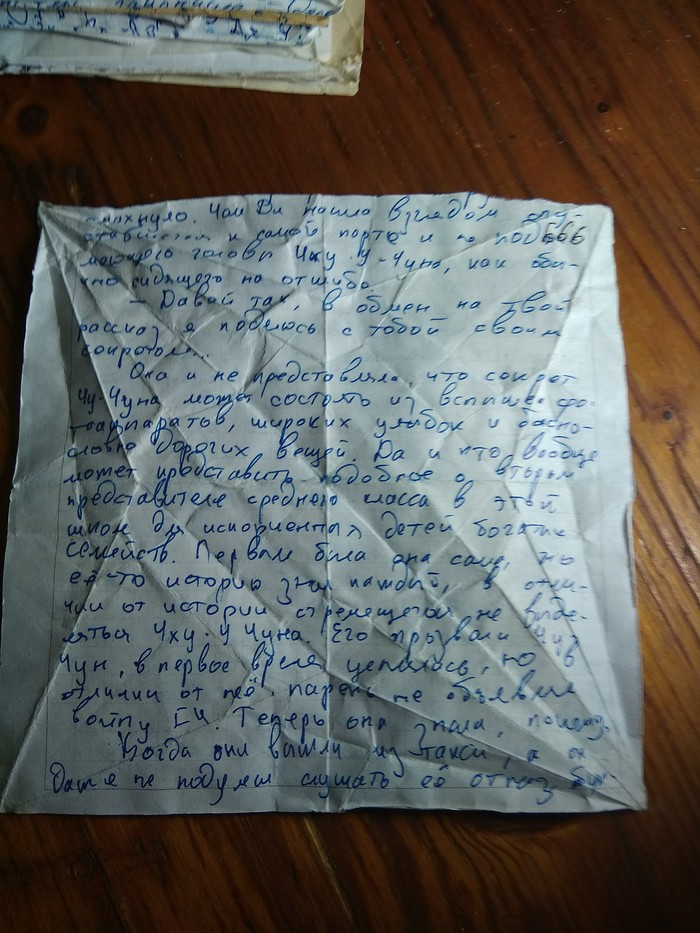 Чан Ди нашла взглядом
и самой парты и не под666
головы Чжу У-Чуна, как обы-
чно сидящего на отшибе.
— Давай так, в обмен на твой
рассказ я поделюсь с тобой своим
секретом...
Она и не представляла, что секрет
Чу-Чуна может состоять из вспышек фо-
тоаппаратов, широких улыбок и басно-
словно дорогих вещей. Да и кто вообще
может представить подобное о втором
представителе среднего класса в этой
школе для испорченных детей богатых
семейств. Первой была она сама, но
её-то историю знал каждый, в отли-
чии от истории стремящегося не выде-
ляться Чжу У Чуна. Его прозвали
Чун, в первое время цеплялось, но в
отличии от неё парень не объявил
войну Теперь она знала, почему.
Когда они вышли из такси, а он
даже не подумал слушать её отказ